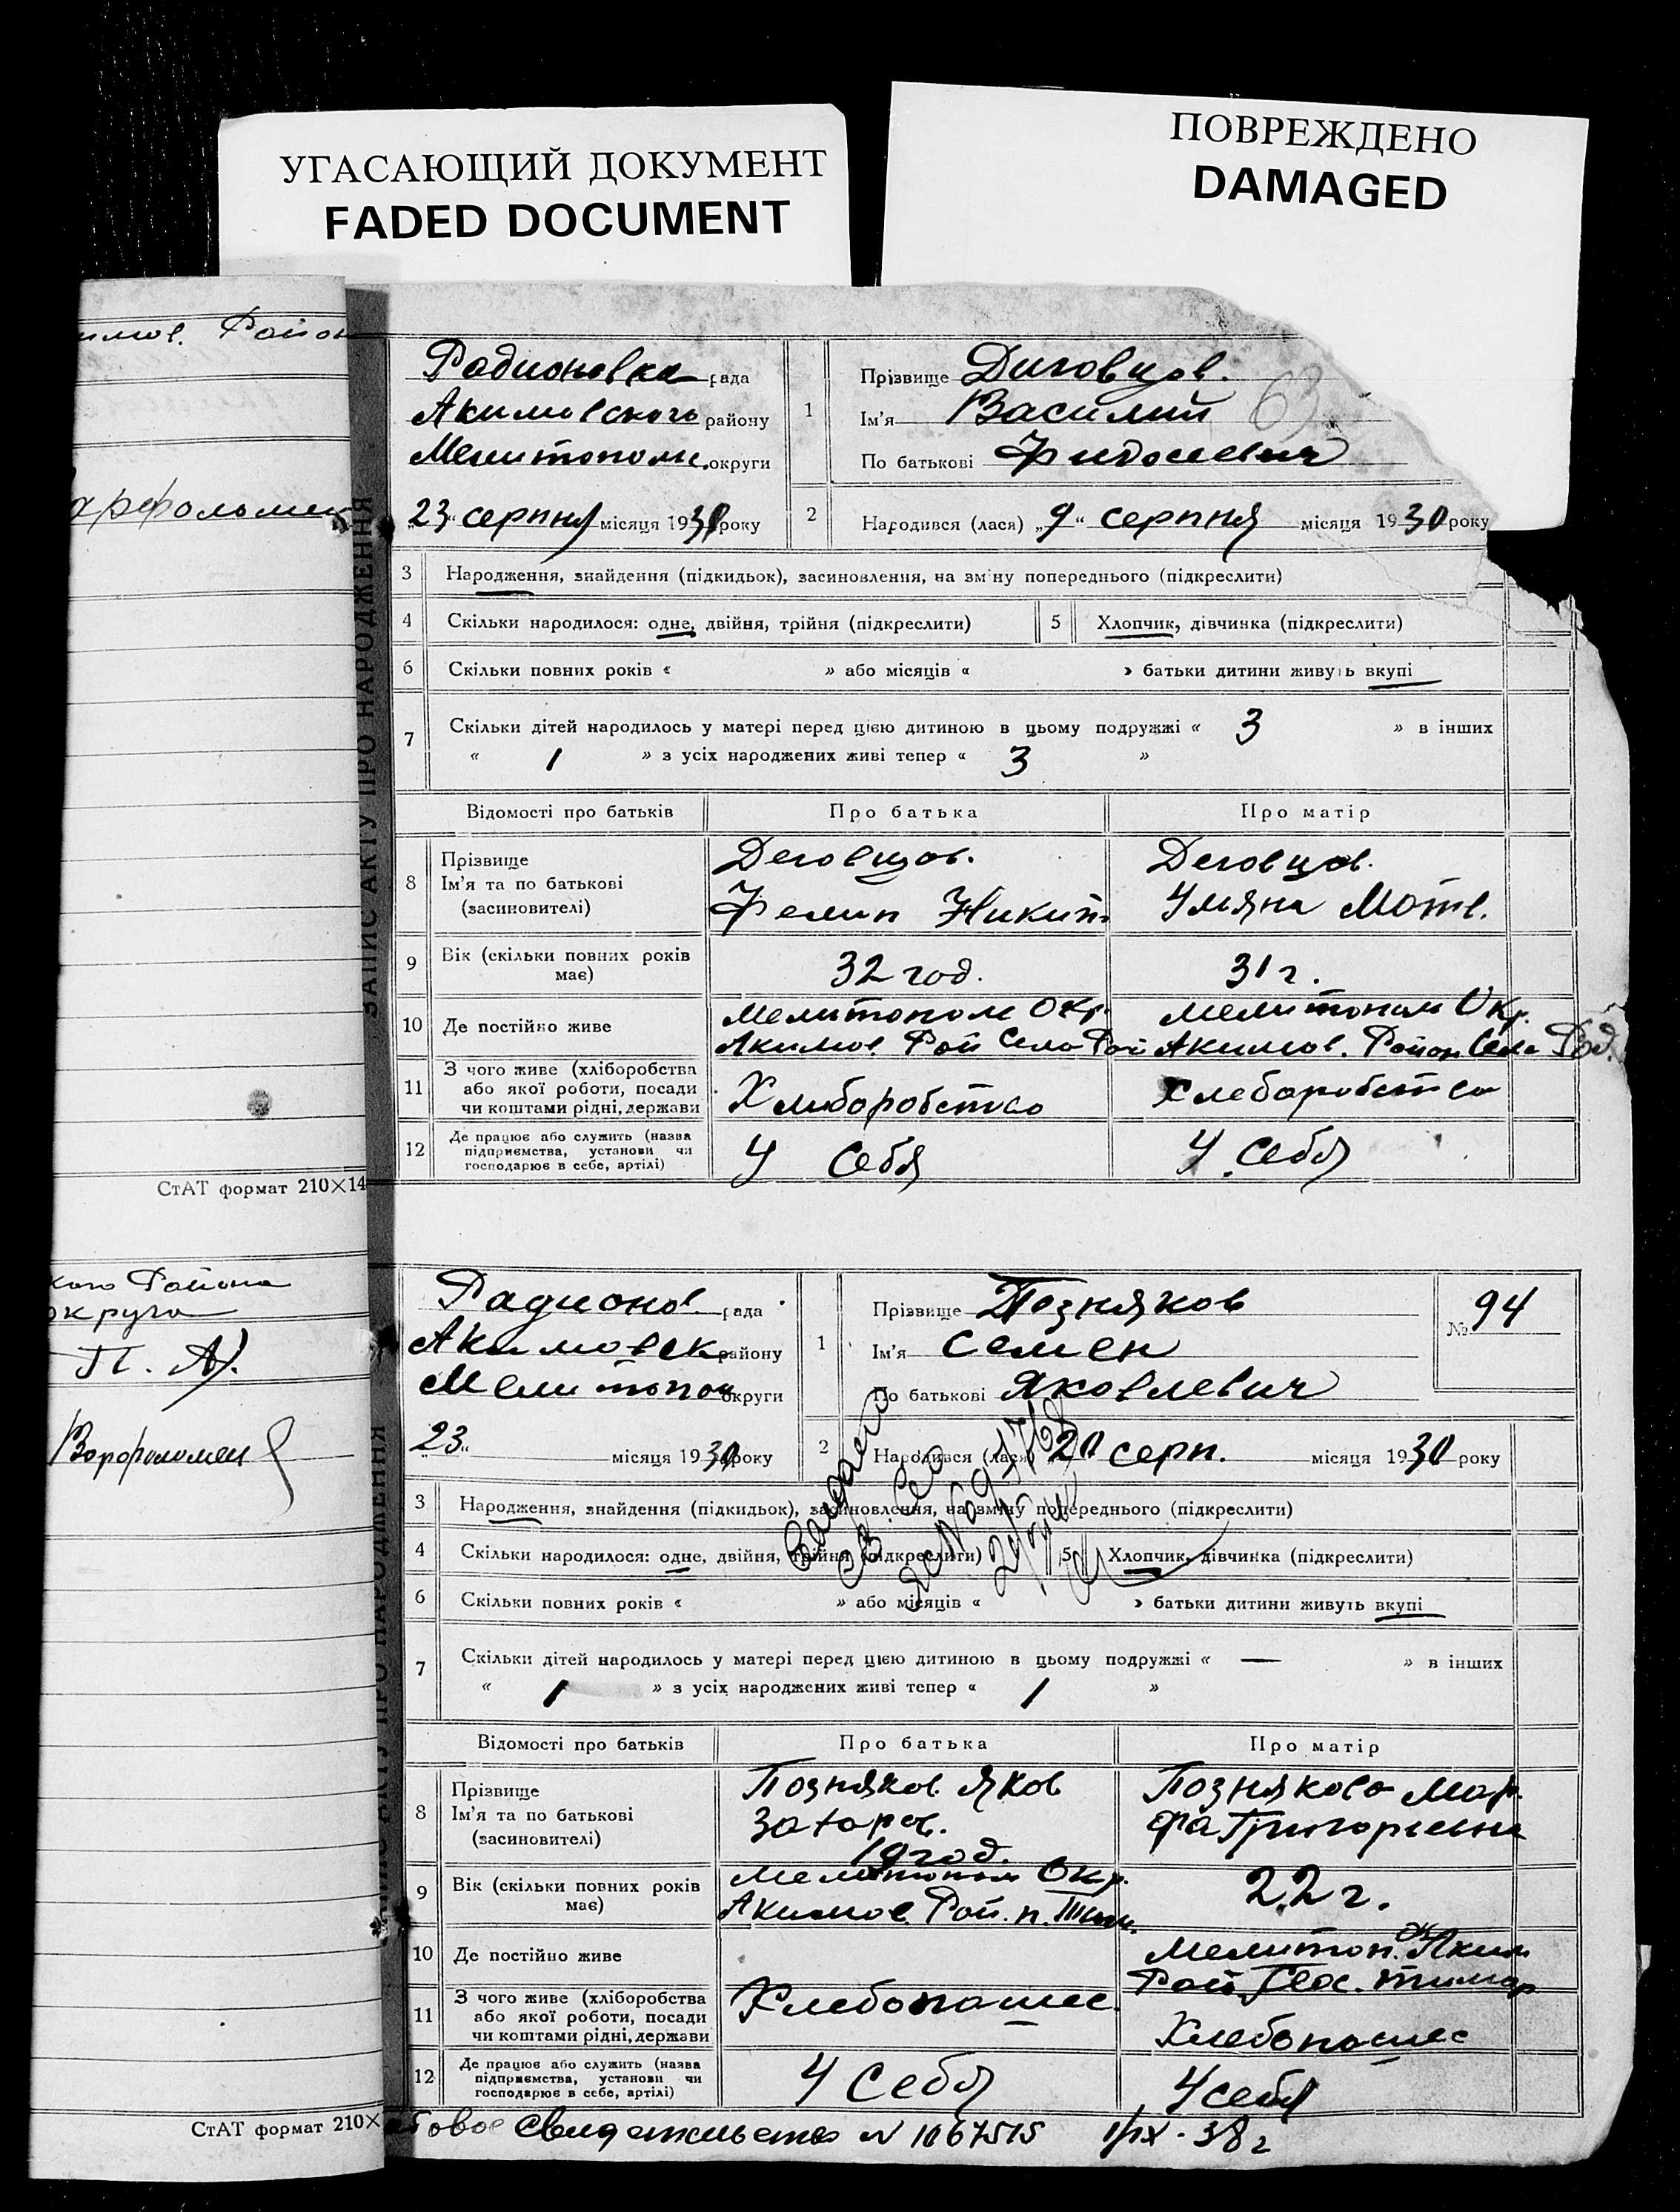 УГАСАЮЩИЙ ДОКУМЕНТ
FADED DOCUMENT
ПОВРЕЖДЕНО
DAMAGED
имов. Район
СтАТ формат 210×14
Района
округа
П. А).
Ворфоломеи
СтАТ формат 210×
ЗАПИС АКТУ ПРО НАРОДЖЕННЯ
Радионовка рада
Акимовского району
Мелитополь. округи
„23“ серпня місяця 1930 року
1
Прізвище Диговцов.
Ім'я Василий 63
По батькові Фидосеевич
2 Народився (лася) „9“ серпня місяця 1930 року
3 Народження, знайдення (підкидьок), засиновлення, на зміну попереднього (підкреслити)
4 Скільки народилося: одне, двійня, трійня (підкреслити) 5 Хлопчик, дівчинка (підкреслити)
6 Скільки повних років « » або місяців « » батьки дитини живуть вкупі
7 Скільки дітей народилось у матері перед цією дитиною в цьому подружжі « 3 » в інших
« 1 » з усіх народжених живі тепер « 3 »
Відомості про батьків Про батька Про матір
8 Прізвище
Ім'я та по батькові
(засиновителі)
Деговцов.
Никит.
Деговцов.
Уляна Мотв.
9 Вік (скільки повних років має) 32 год. 31 г.
10 Де постійно живе
Мелитополь Окр.
Акимов. Рай Село Рай
Мелитополь Окр.
Акимов. Район Село Рад.
11 З чого живе (хліборобства
або якої роботи, посади
чи коштами рідні, держави
Хлиборобство
Хлеборобство
12 Де працює або служить (назва
підприємства, установи чи
господарює в себе, артілі)
У себя
У себя
ЗАПИС АКТУ ПРО НАРОДЖЕННЯ
Радионов. рада
Акимовск району
Мелитопол округи
„23“ місяця 1930 року
1
Прізвище Позняков
Ім'я Семен
По батькові Яковлевич
№ 94
2 Народився (лася) 20 серп. місяця 1930 року
3 Народження, знайдення (підкидьок), засиновлення, на зміну попереднього (підкреслити)
4 Скільки народилося: одне, двійня, трійня (підкреслити) 5 Хлопчик, дівчинка (підкреслити)
6 Скільки повних років « » або місяців « » батьки дитини живуть вкупі
7 Скільки дітей народилось у матері перед цією дитиною в цьому подружжі « — » в інших
« 1 » з усіх народжених живі тепер « 1 »
Відомості про батьків Про батька Про матір
8 Прізвище
Ім'я та по батькові
(засиновителі)
Позняков Яков
Захаров.
19 год.
Познякова Мар
фа Григорьевна
9 Вік (скільки повних років має)
Мелитополь Окр.
Акимов. Рай. п. Тим.
22 г.
10 Де постійно живе
Мелитоп. Аким
Рай. Пос. Тимор
11 З чого живе (хліборобства
або якої роботи, посади
чи коштами рідні, держави
Хлебопашес.
Хлебопашес
12 Де працює або служить (назва
підприємства, установи чи
господарює в себе, артілі)
У себя
У себя
свидетельство N 1167515 1/IX-38 г